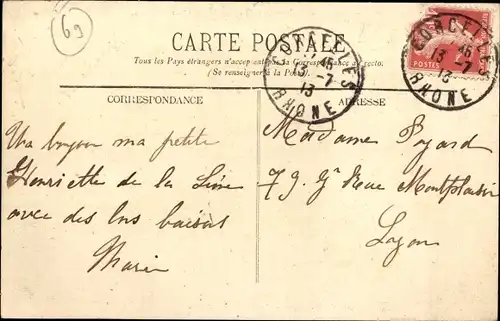 69
CARTE POSTALE
Tous les Pays étrangers n'acceptent pas la Correspondance au recto.
(Se renseigner à la Poste).
CORCELLES
15
13-7
13
RHONE
CORCELLES
POSTES
15
13-7
13
RHONE
CORRESPONDANCE
ADRESSE
Un bonjour ma petite
Henriette de la
avec des bons baisers
Marie
Madame
79 Gde Rue Montplaisir
Lyon